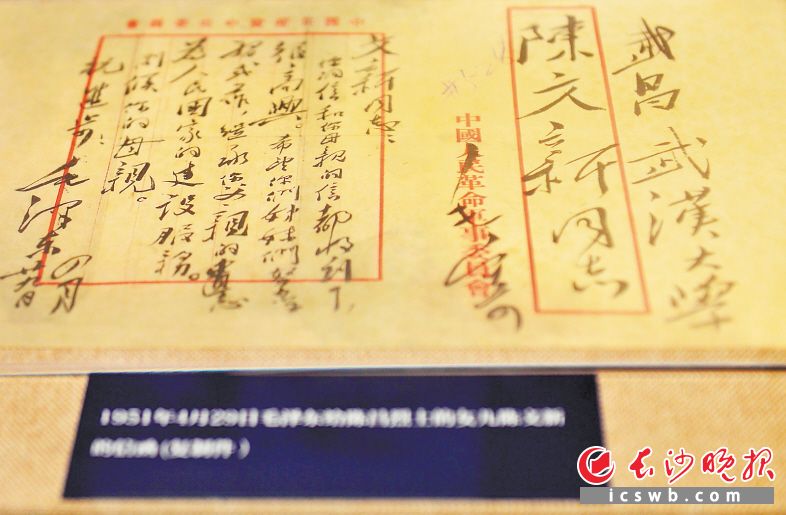 武昌 武漢大學
陳文新同志
中國人民革命軍事委員會
文新同志：
你的信和你母親的信都收到了，
很高興。希望你們姊妹們努力
學習或工作，繼承你父親的遺志，
為人民國家的建設服務。
問候你的母親。
祝進步！
毛澤東
四月廿九日
1951年4月29日毛泽东给陈昌烈士的女儿陈文新
的信函(复制件）
长沙晚报
icswb.com